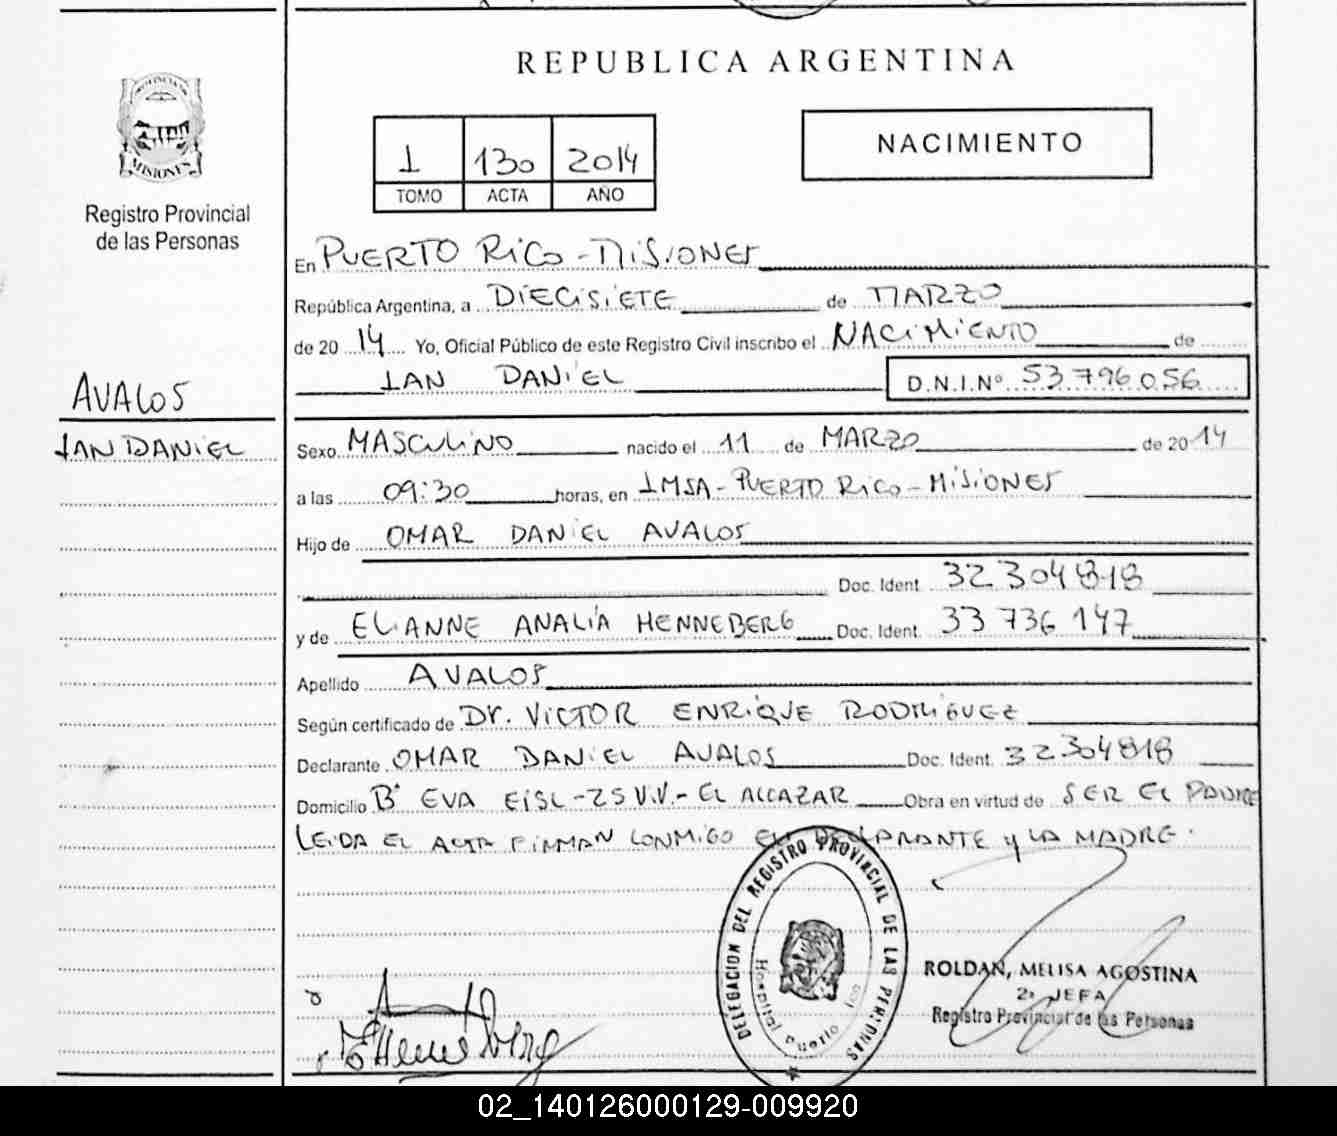 REPUBLICA ARGENTINA
PROVINCIA DE
MISIONES
Registro Provincial
de las Personas
1 130 2014
TOMO ACTA AÑO
NACIMIENTO
En PUERTO RICO - MISIONES
República Argentina, a DIECISIETE de MARZO
de 20 14 Yo, Oficial Público de este Registro Civil inscribo el NACIMIENTO de
IAN DANIEL D.N.I.Nº 53 796 056
AVALOS
IAN DANIEL
Sexo MASCULINO nacido el 11 de MARZO de 20 14
a las 09:30 horas, en IMSA - PUERTO RICO - MISIONES
Hijo de OMAR DANIEL AVALOS
Doc. Ident. 32 304 818
y de ELIANNE ANALÍA HENNEBERG Doc. Ident. 33 736 147
Apellido AVALOS
Según certificado de Dr. VICTOR ENRIQUE RODRIGUEZ
Declarante OMAR DANIEL AVALOS Doc. Ident. 32304818
Domicilio Bº EVA EISL - 25 V.V. - EL ALCAZAR Obra en virtud de SER EL PADRE
LEIDA EL ACTA FIRMAN CONMIGO EL DECLARANTE y LA MADRE.
DELEGACION DEL REGISTRO PROVINCIAL DE LAS PERSONAS
Hospital Puerto Rico
ROLDAN, MELISA AGOSTINA
2º JEFA
Registro Provincial de las Personas
02_140126000129-009920